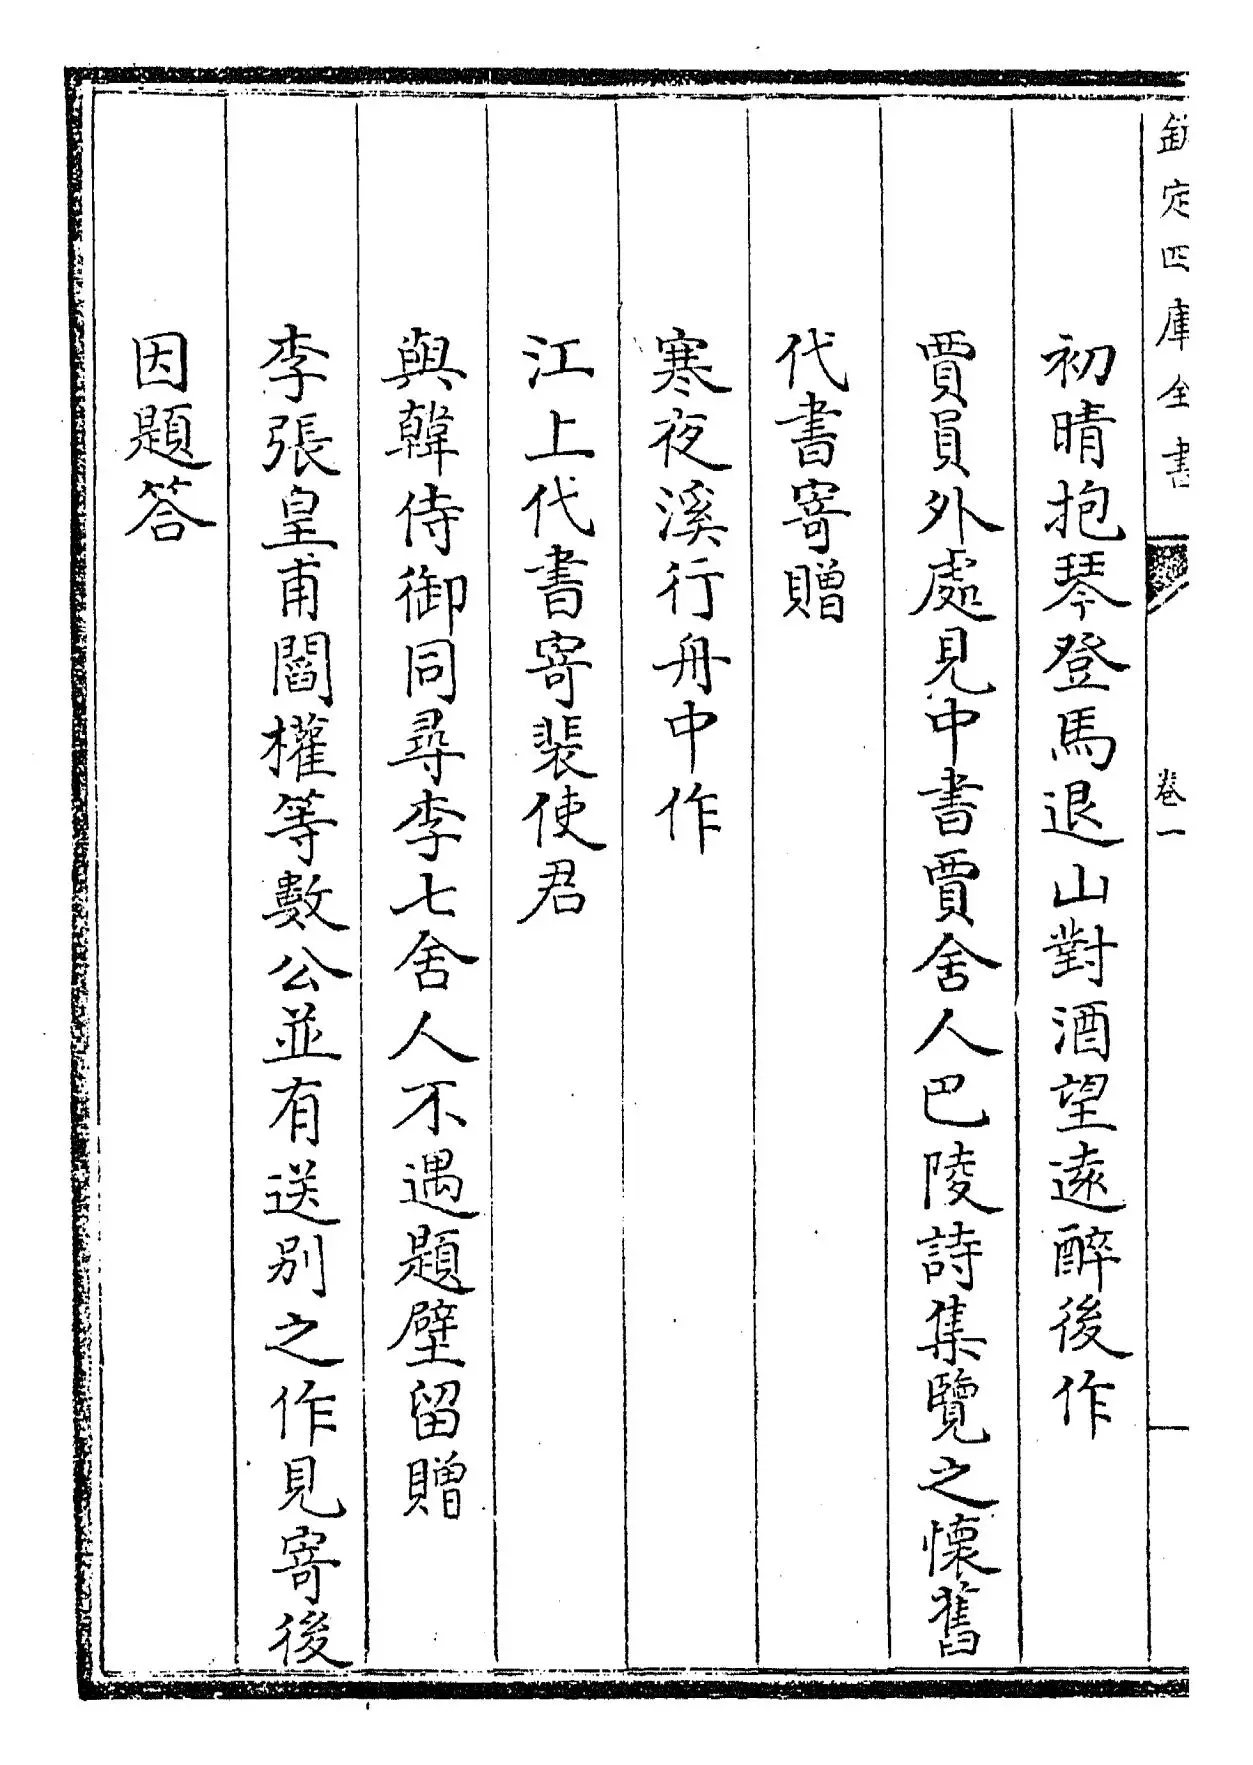 欽定四庫全書
卷一
初晴抱琴登馬退山對酒望遠醉後作
賈員外處見中書賈舍人巴陵詩集覽之懷舊
代書寄贈
寒夜溪行舟中作
江上代書寄裴使君
與韓侍御同尋李七舍人不遇題壁留贈
李張皇甫閻權等數公並有送別之作見寄後
因題答